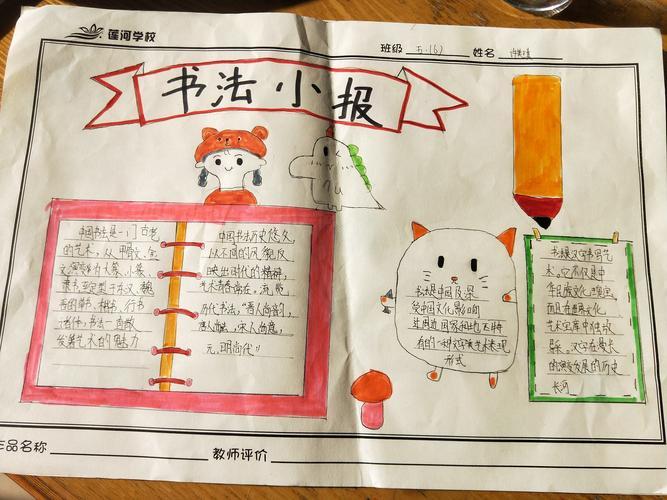 莲河学校
班级 五.(6) 姓名
书法小报
中国书法是一门古老
的艺术，从甲骨文、金
文演变为大篆、小篆、
隶书至定型于东汉、魏
晋的草书、楷书、行书
诸体，书法一直散
发着艺术的魅力
中国书法历史悠久，
以不同的风貌反
映出时代的精神，
艺术青春常在，浏览
历代书法，“晋人尚韵，
唐人尚法，宋人尚意，
元、明尚态”
书法是中国及深
受中国文化影响
过的周边国家和地区特
有的一种文字美艺术表现
形式
书法是汉字书写艺
术。它不仅是中
华民族文化瑰宝，
而且在世界文化
艺术宝库中独放
异彩。汉字在漫长
的演变发展的历史
长河
作品名称
教师评价